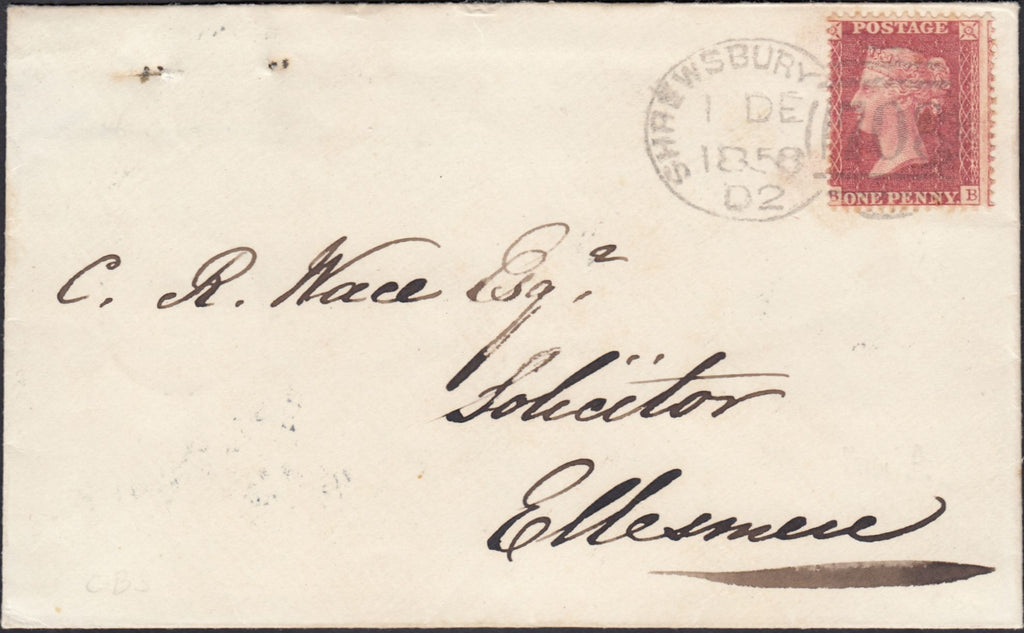 SHREWSBURY
1 DE
1858
D2
POSTAGE
B ONE PENNY. B
C. R. Wace Esqr.
Solicitor
Ellesmere
CBS